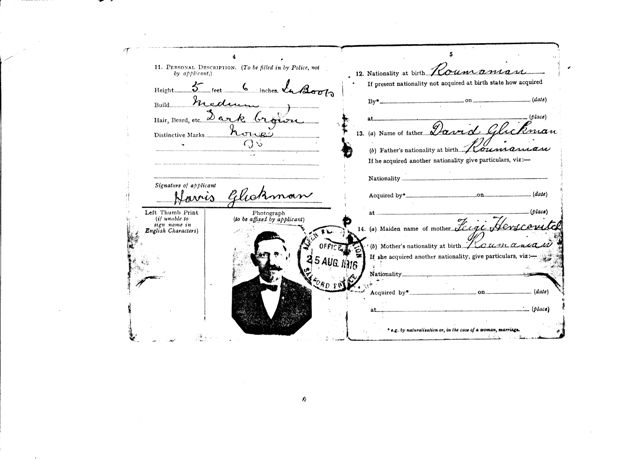 4
11. PERSONAL DESCRIPTION. (To be filled in by Police, not
by applicant.)
Height 5 feet 6 inches. In Boots
Build Medium
Hair, Beard, etc. Dark brown
Distinctive Marks none
Signature of applicant
Harris Glickman
Left Thumb Print
(if unable to
sign name in
English Characters)
Photograph
(to be affixed by applicant)
OFFICE
25 AUG. 1916
SALFORD
5
12. Nationality at birth Roumanian
If present nationality not acquired at birth state how acquired
By* on (date)
at (place)
13. (a) Name of father David Glickman
(b) Father's nationality at birth Roumanian
If he acquired another nationality give particulars, viz:—
Nationality
Acquired by* on (date)
at (place)
14. (a) Maiden name of mother Herscovitch
(b) Mother's nationality at birth Roumanian
If she acquired another nationality, give particulars, viz:—
Nationality
Acquired by* on (date)
at (place)
* e.g. by naturalisation or, in the case of a woman, marriage.